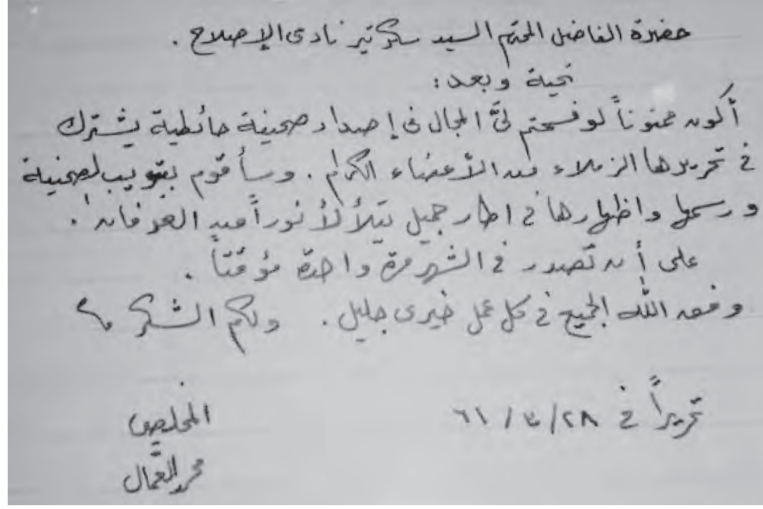 حضرة الفاضل المحترم السيد سكرتير نادى الإصلاح .
تحية وبعد :
أكون ممنوناً لو فسحتم لىَّ المجال فى إصدار صحيفة حائطية يشترك
فى تحريرها الزملاء من الأعضاء الكرام . وسأقوم بتبويب الصحيفة
و رسمها واظهارها فى اطار جميل يتلألأ نوراً من العرفان .
على أن تصدر فى الشهر مرة واحدة مؤقتاً .
وفق الله الجميع فى كل عمل خيرى جليل . ولكم الشكر
تحريراً فى ٢٨/٣/٦١
المخلص
محمد العمال